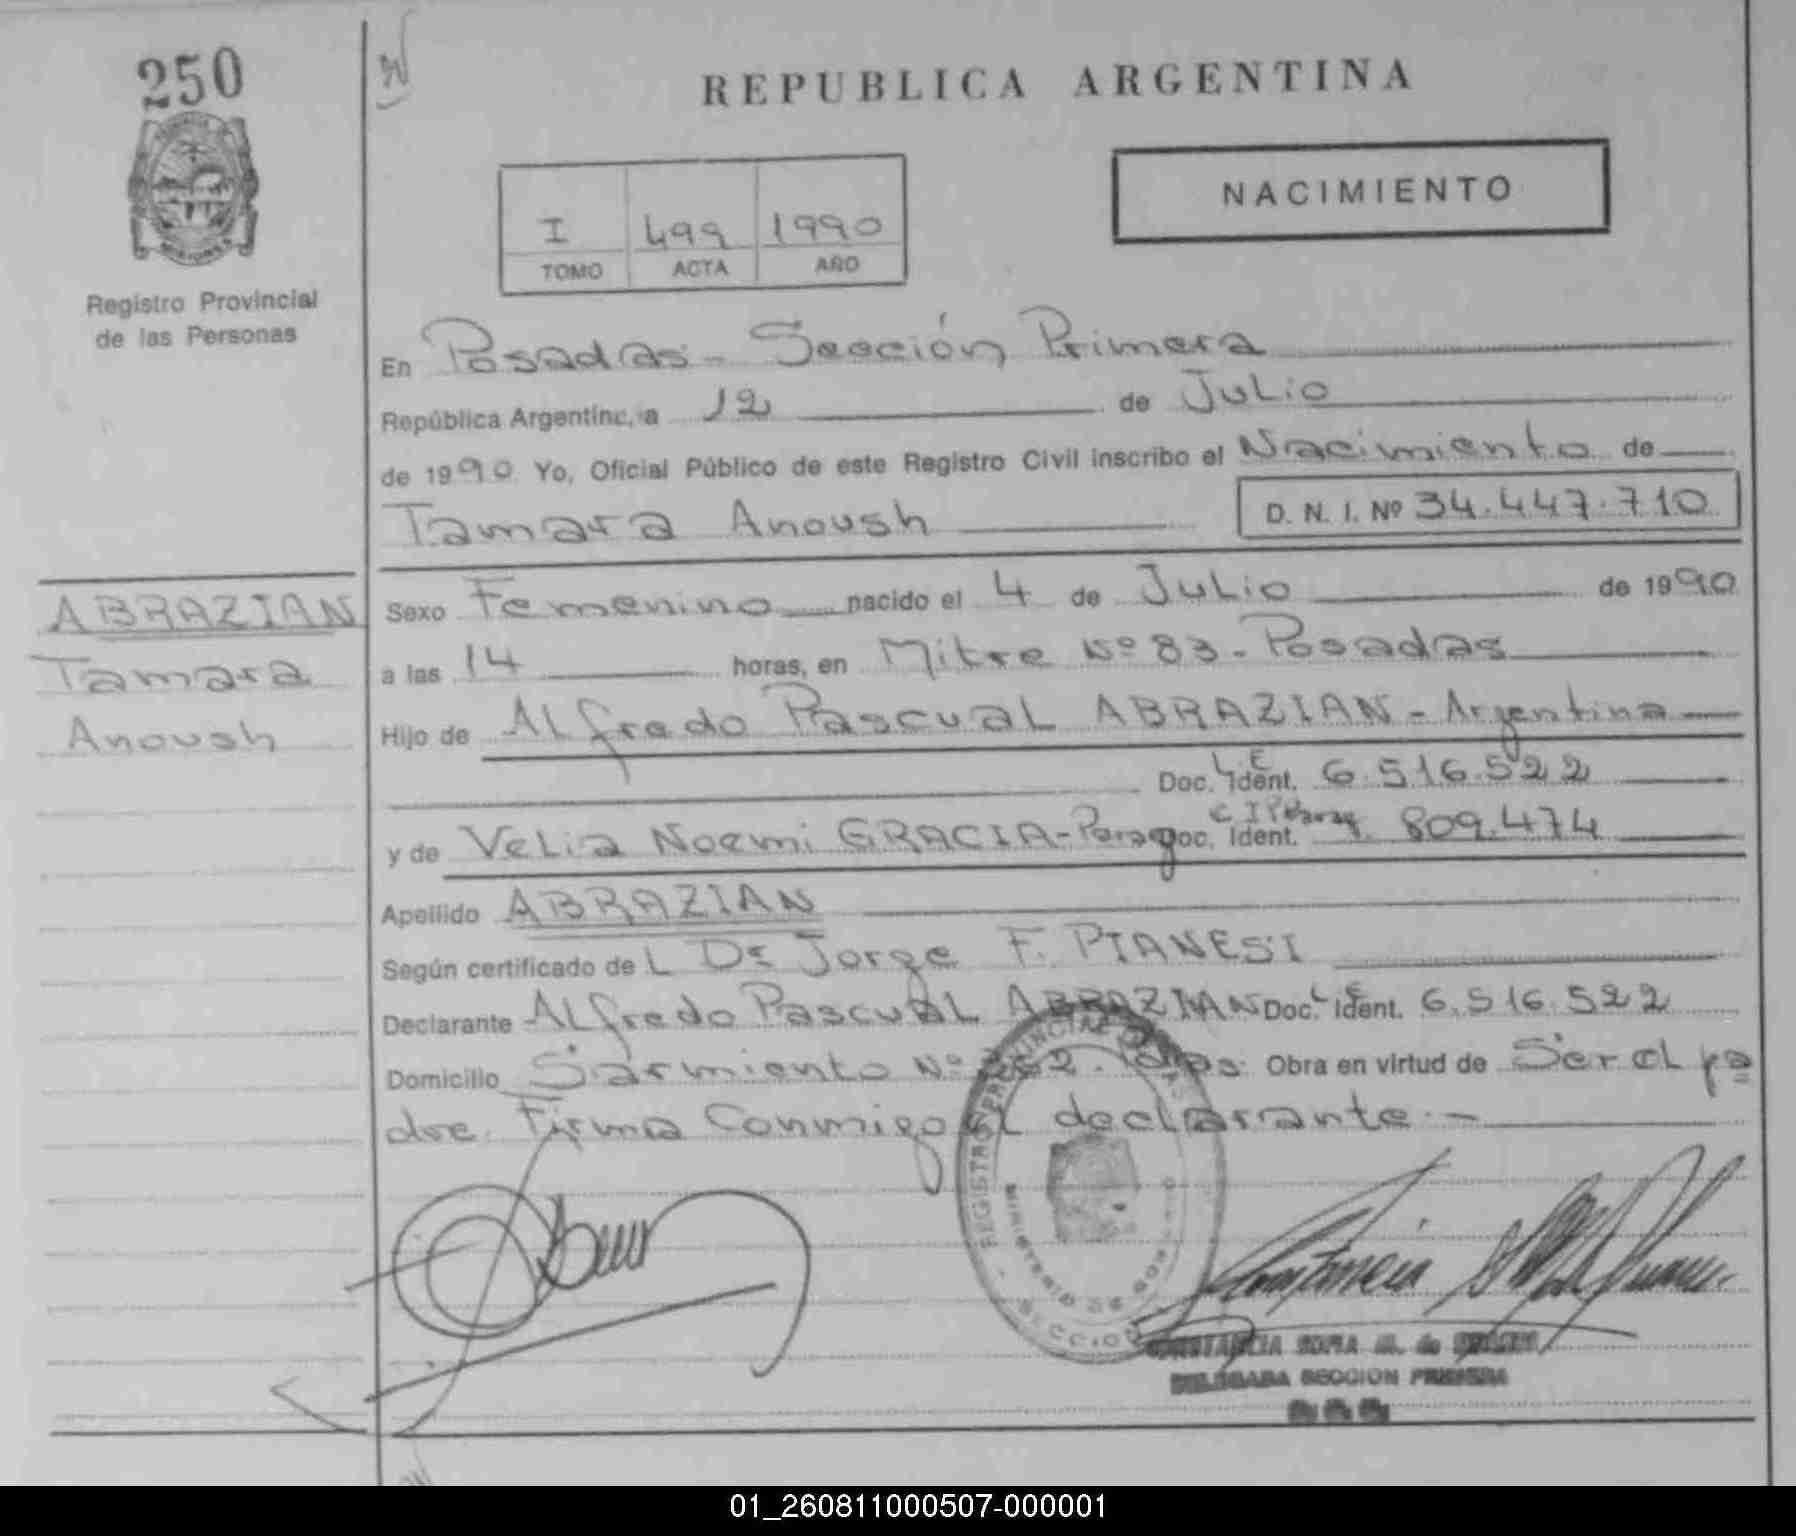 250
REPUBLICA ARGENTINA
NACIMIENTO
I 499 1990
TOMO ACTA AÑO
Registro Provincial
de las Personas
En Posadas - Sección Primera
República Argentina, a 12 de Julio
de 1990 Yo, Oficial Público de este Registro Civil inscribo el Nacimiento de
Tamara Anoush D. N. I. Nº 34.447.710
ABRAZIAN
Tamara
Anoush
Sexo Femenino nacido el 4 de Julio de 1990
a las 14 horas, en Mitre Nº 83 - Posadas
Hijo de Alfredo Pascual ABRAZIAN - Argentina
Doc. Ident. L E 6.516.522
y de Velia Noemi GRACIA - Parag Doc. Ident. C I 809.474
Apellido ABRAZIAN
Según certificado de L Dr Jorge F. PIANESI
Declarante Alfredo Pascual ABRAZIAN Doc. Ident. L E 6.516.522
Domicilio Sarmiento Nº Obra en virtud de Ser el pa
dre. Firma Conmigo el declarante. -
REGISTRO PROVINCIAL DE LAS
MINISTERIO DE GOB
SECCION
CONSTANCIA SOFIA M. de
DELEGADA SECCION PRIMERA
01_260811000507-000001